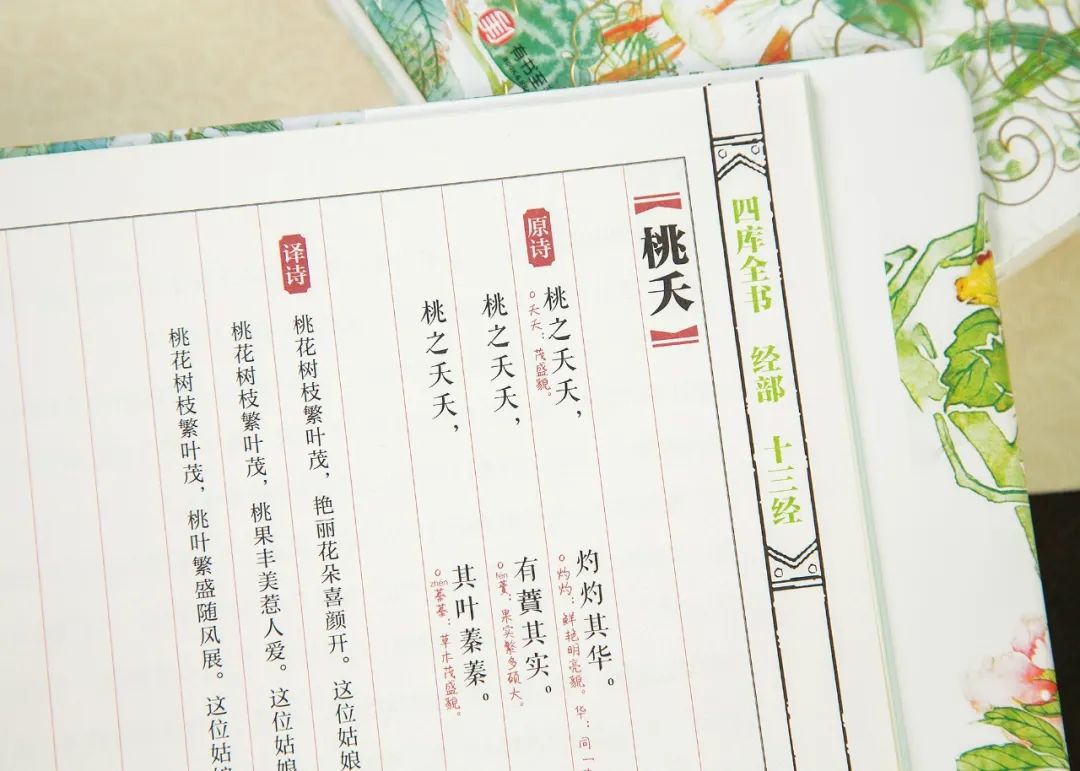 有书至
四库全书 经部 十三经
【桃夭】
原诗
桃之夭夭，灼灼其华。
○夭夭：茂盛貌。
○灼灼：鲜艳明亮貌。华：同
桃之夭夭，有蕡其实。
○fén蕡：果实繁多硕大。
桃之夭夭，其叶蓁蓁。
○zhēn蓁蓁：草木茂盛貌。
译诗
桃花树枝繁叶茂，艳丽花朵喜颜开。这位姑娘
桃花树枝繁叶茂，桃果丰美惹人爱。这位姑娘
桃花树枝繁叶茂，桃叶繁盛随风展。这位姑娘